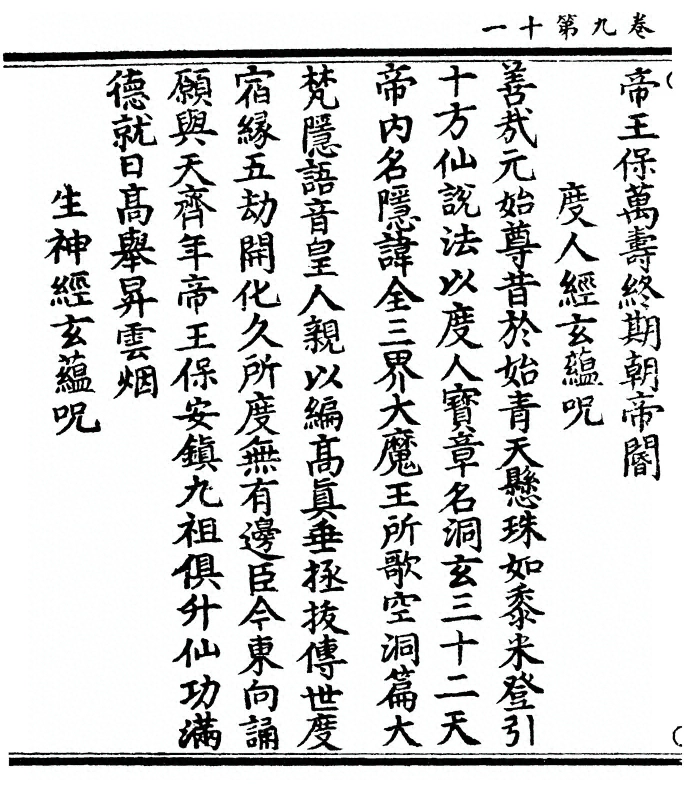 卷九第十一
帝王保萬壽終期朝帝閽
度人經玄蘊呪
善哉元始尊昔於始青天懸珠如黍米登引
十方仙說法以度人寶章名洞玄三十二天
帝内名隱諱全三界大魔王所歌空洞篇大
梵隱語音皇人親以編高眞垂拯拔傳世度
宿緣五劫開化久所度無有邊臣今東向誦
願與天齊年帝王保安鎮九祖俱升仙功滿
德就日高舉昇雲烟
生神經玄蘊呪